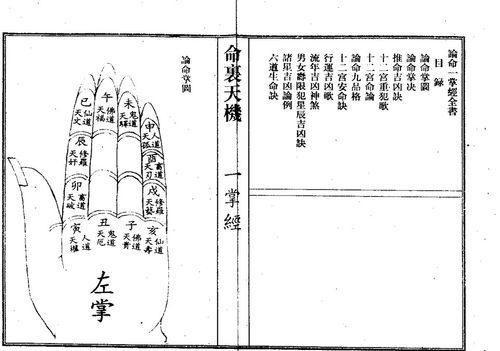 論命一掌經全書
目錄
論命掌圖
論命掌決
推命吉凶訣
十二宮重犯歌
十二宮命論
論命九品格
十二宮安命訣
行運吉凶歌
流年吉凶神煞
男女壽限犯星辰吉凶訣
諸星吉凶論例
六道生命訣
命裏天機
一掌經
論命掌圖
申人道
天孤
酉畜道
天刃
戌修羅
天藝
亥仙道
天壽
未鬼道
天驛
子佛道
天貴
午佛道
天福
丑鬼道
天厄
巳仙道
天文
辰修羅
天奸
卯畜道
天破
寅人道
天權
左掌